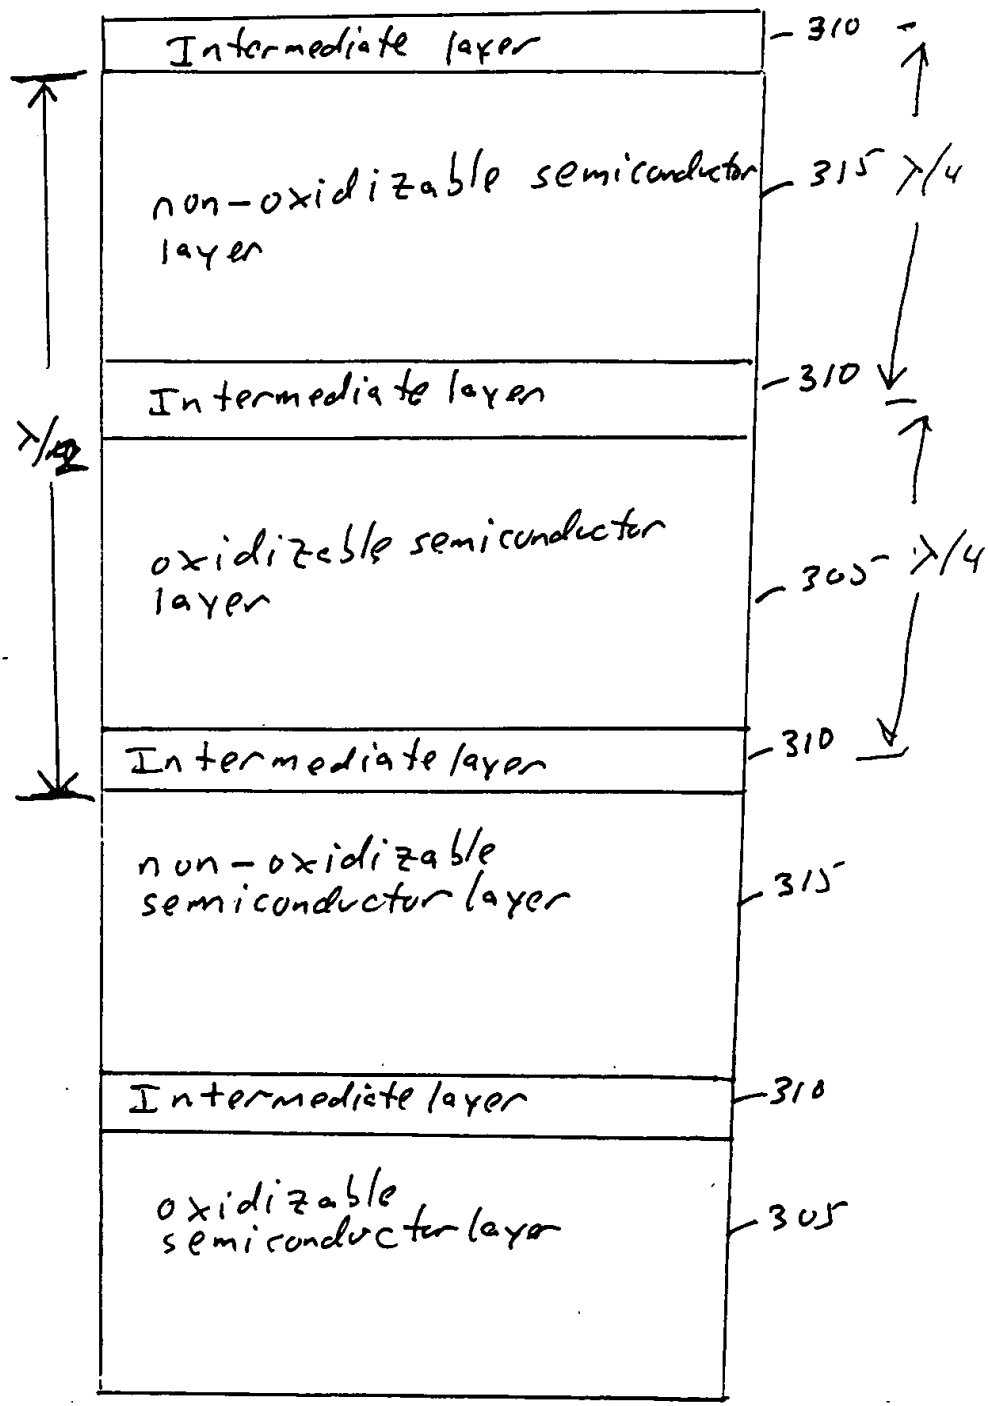 Intermediate layer
310
non-oxidizable semiconductor
layer
315
λ/4
Intermediate layer
310
λ/2
oxidizable semiconductor
layer
305
λ/4
Intermediate layer
310
non-oxidizable
semiconductor layer
315
Intermediate layer
310
oxidizable
semiconductor layer
305